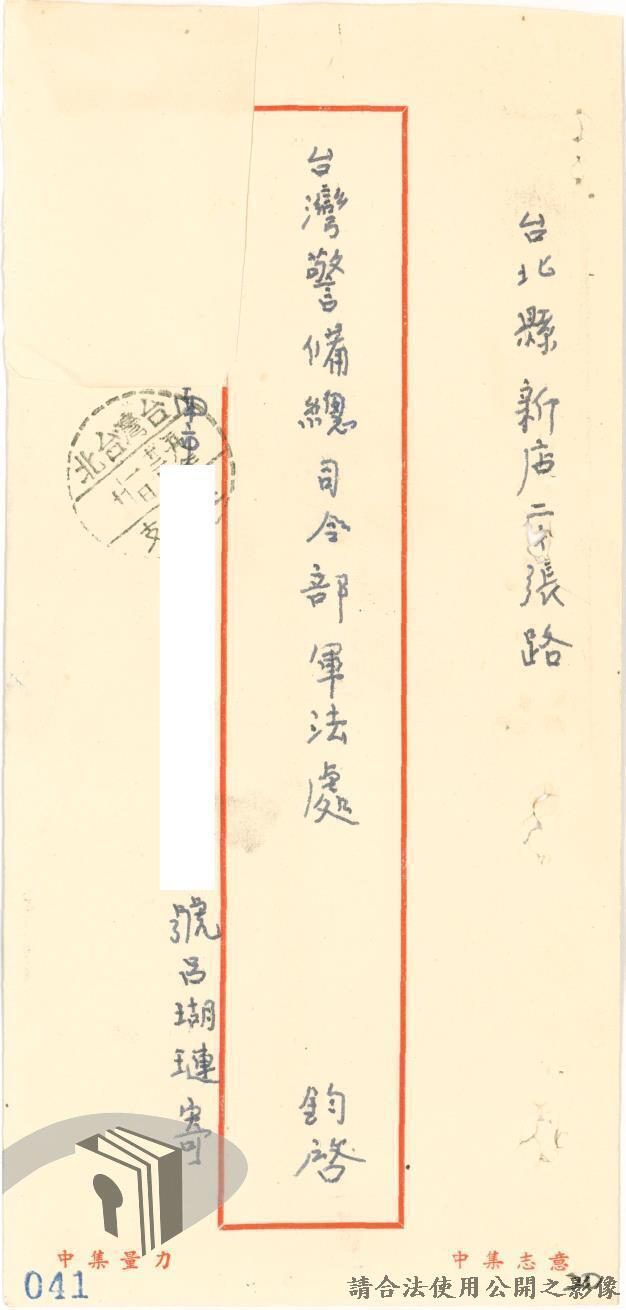 台北縣新店二十張路
台灣警備總司令部軍法處 鈞啓
號呂瑚璉寄
台灣台北
意志集中
力量集中
041
請合法使用公開之影像